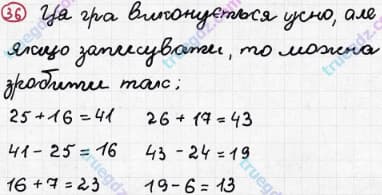 36 Ця гра виконується усно, але
якщо записувати, то можна
зробити так;
25 + 16 = 41 26 + 17 = 43
41 - 25 = 16 43 - 24 = 19
16 + 7 = 23 19 - 6 = 13